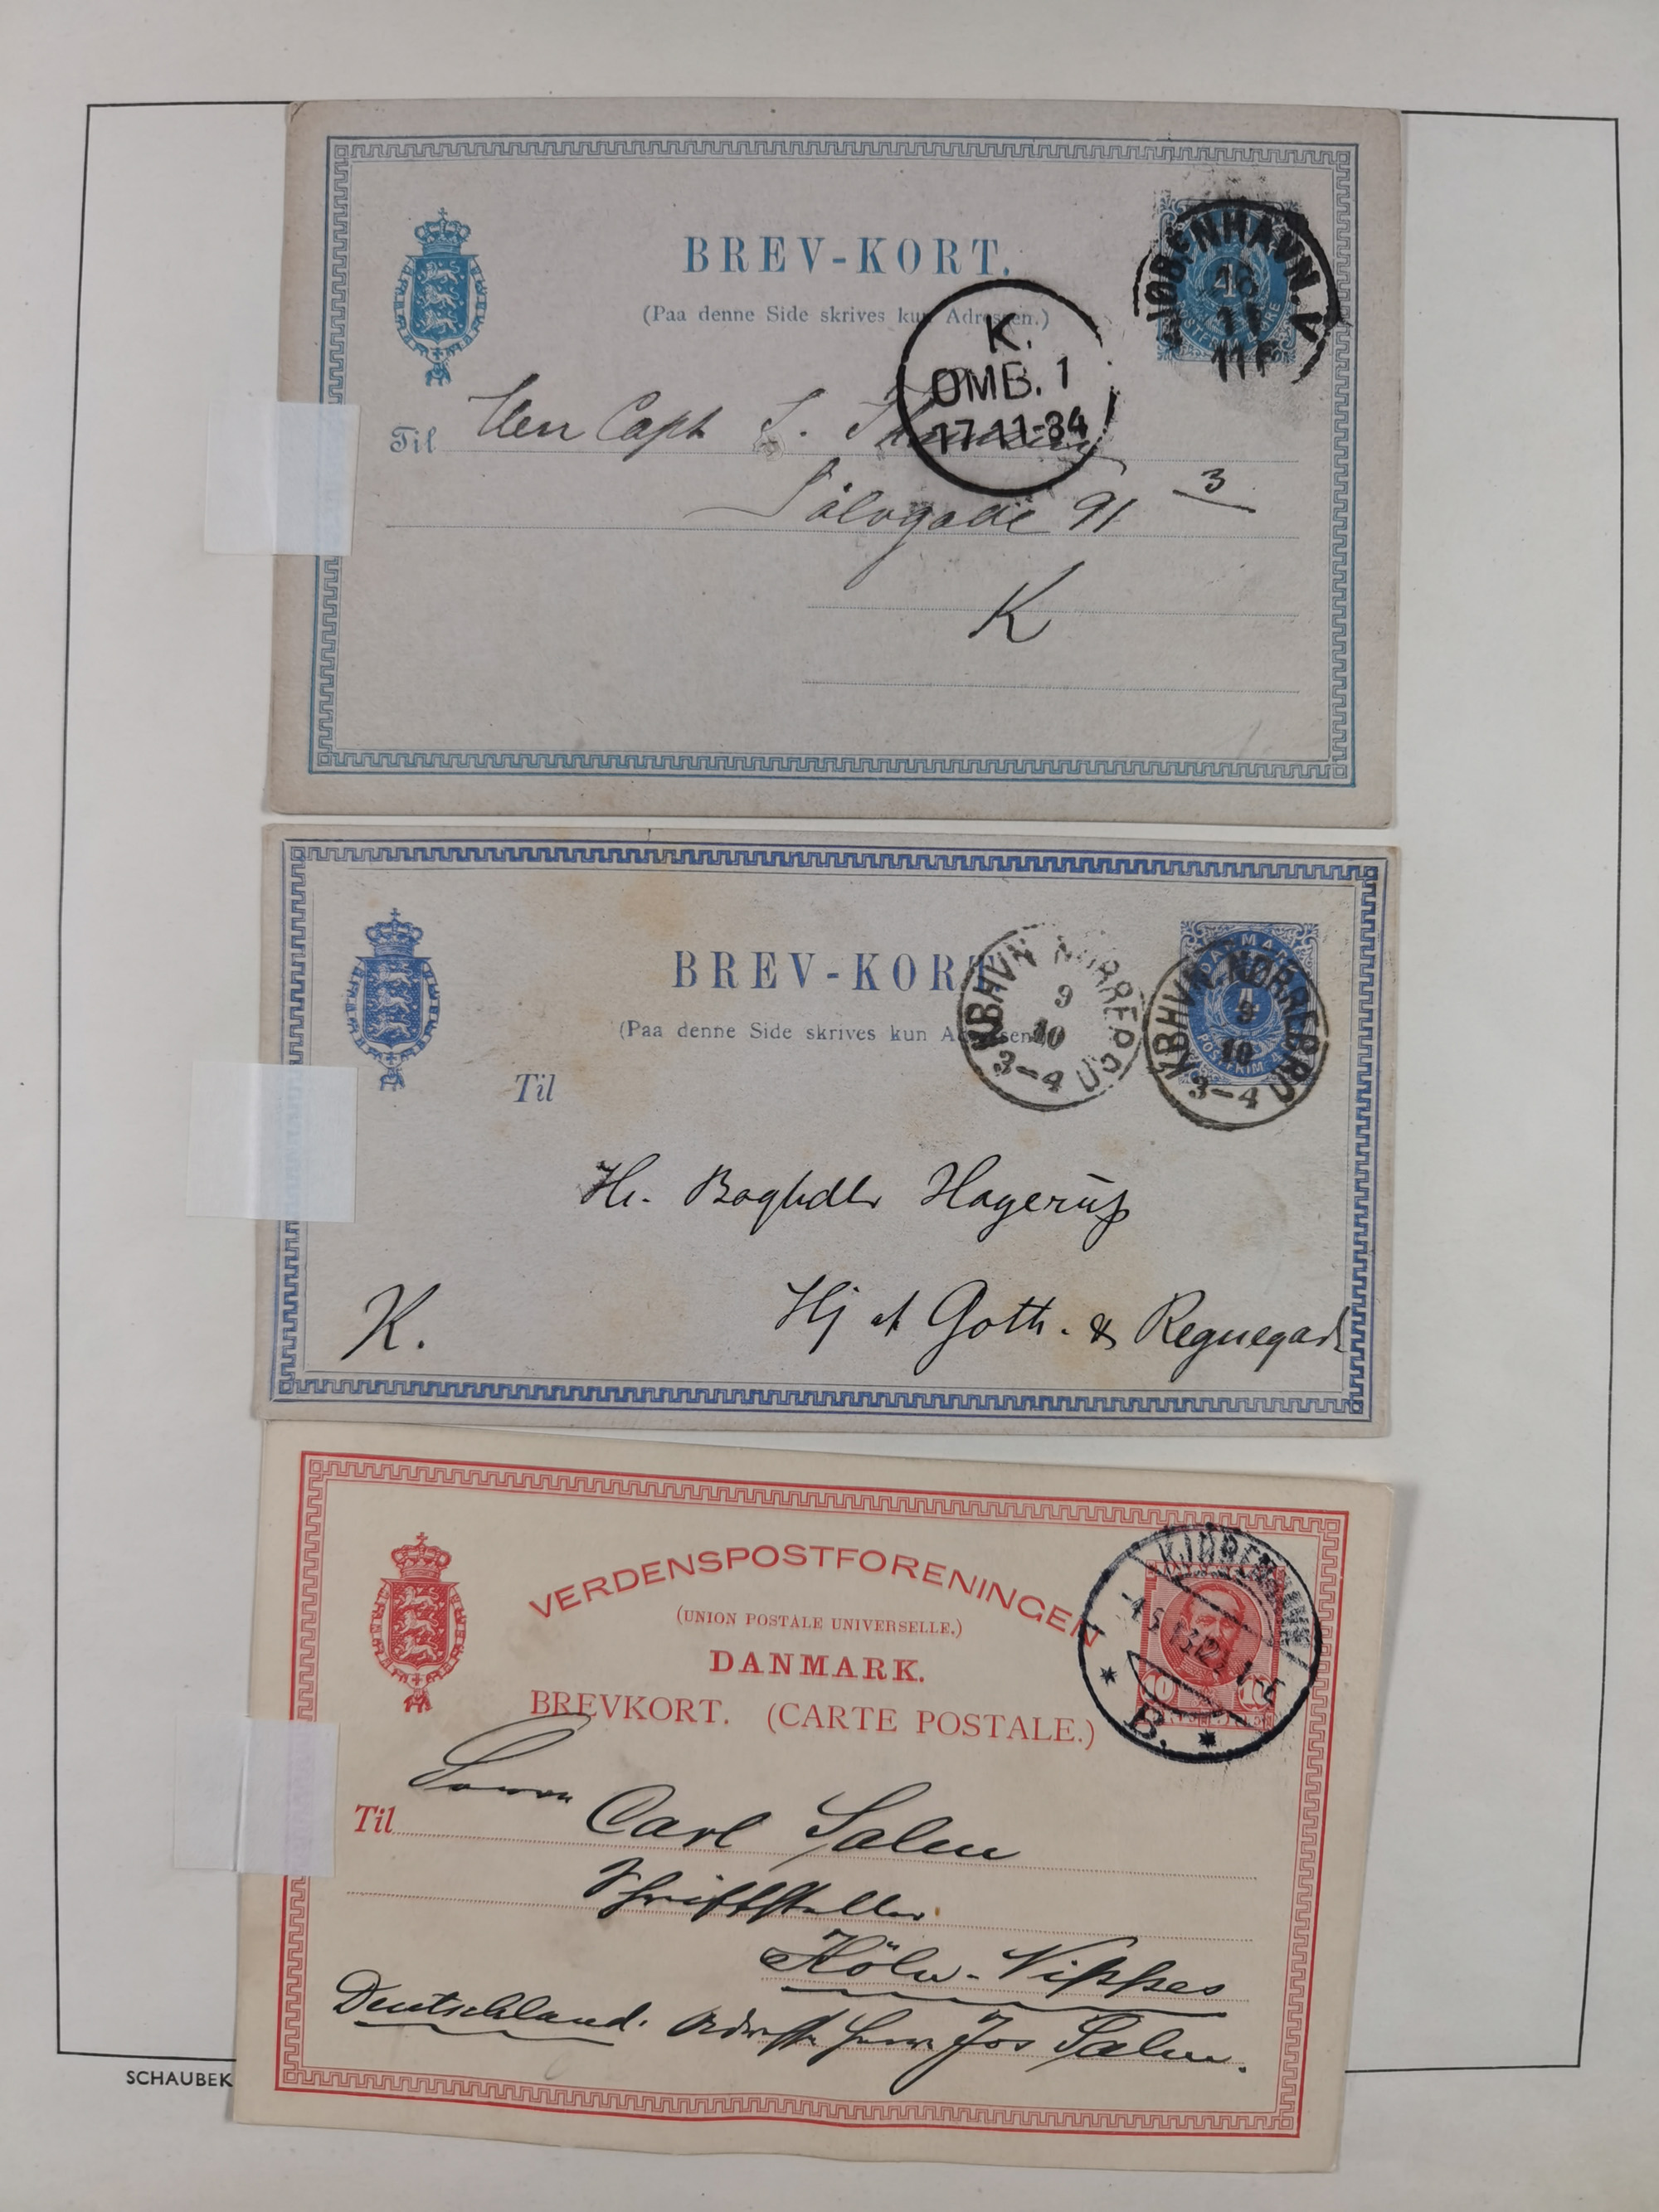 BREV-KORT.
(Paa denne Side skrives kun Adressen.)
KJØBENHAVN. A
16
11
K.
OMB. 1
17-11-84
Til Herr Capt S.
Sølvgade 91 3
K
BREV-KORT
(Paa denne Side skrives kun Adressen
KBHVN. NØRREBRO
9
10
3-4
DANMARK
4
POSTFRIM
KBHVN. NØRREBRO
9
10
3-4
Til
Hr. Boghdlr Hagerup
Hj af Goth. & Regnegade
K.
VERDENSPOSTFORENINGEN
(UNION POSTALE UNIVERSELLE.)
DANMARK.
BREVKORT. (CARTE POSTALE.)
KJØBENHAVN
-4.5.13.
B.
10 10
Til Herrn Carl Salm
Schriftsteller.
Köln-Nippes
Deutschland. Adresse Herrn Jos Salm.
SCHAUBEK